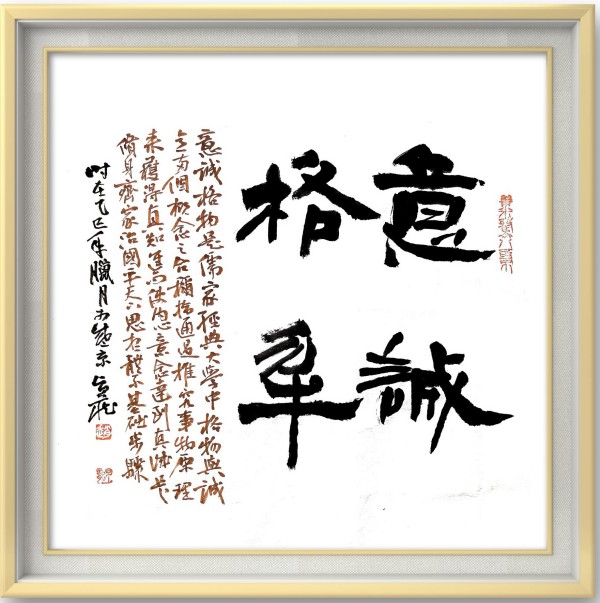 意誠
格物
意誠格物是儒家經典大學中格物與誠
意两個概念之合稱指通過推究事物原理
来獲得真知進而使内心意念達到真誠是
脩身齊家治國平天下思想體系基礎步驟
时在乙巳年臘月於燕京